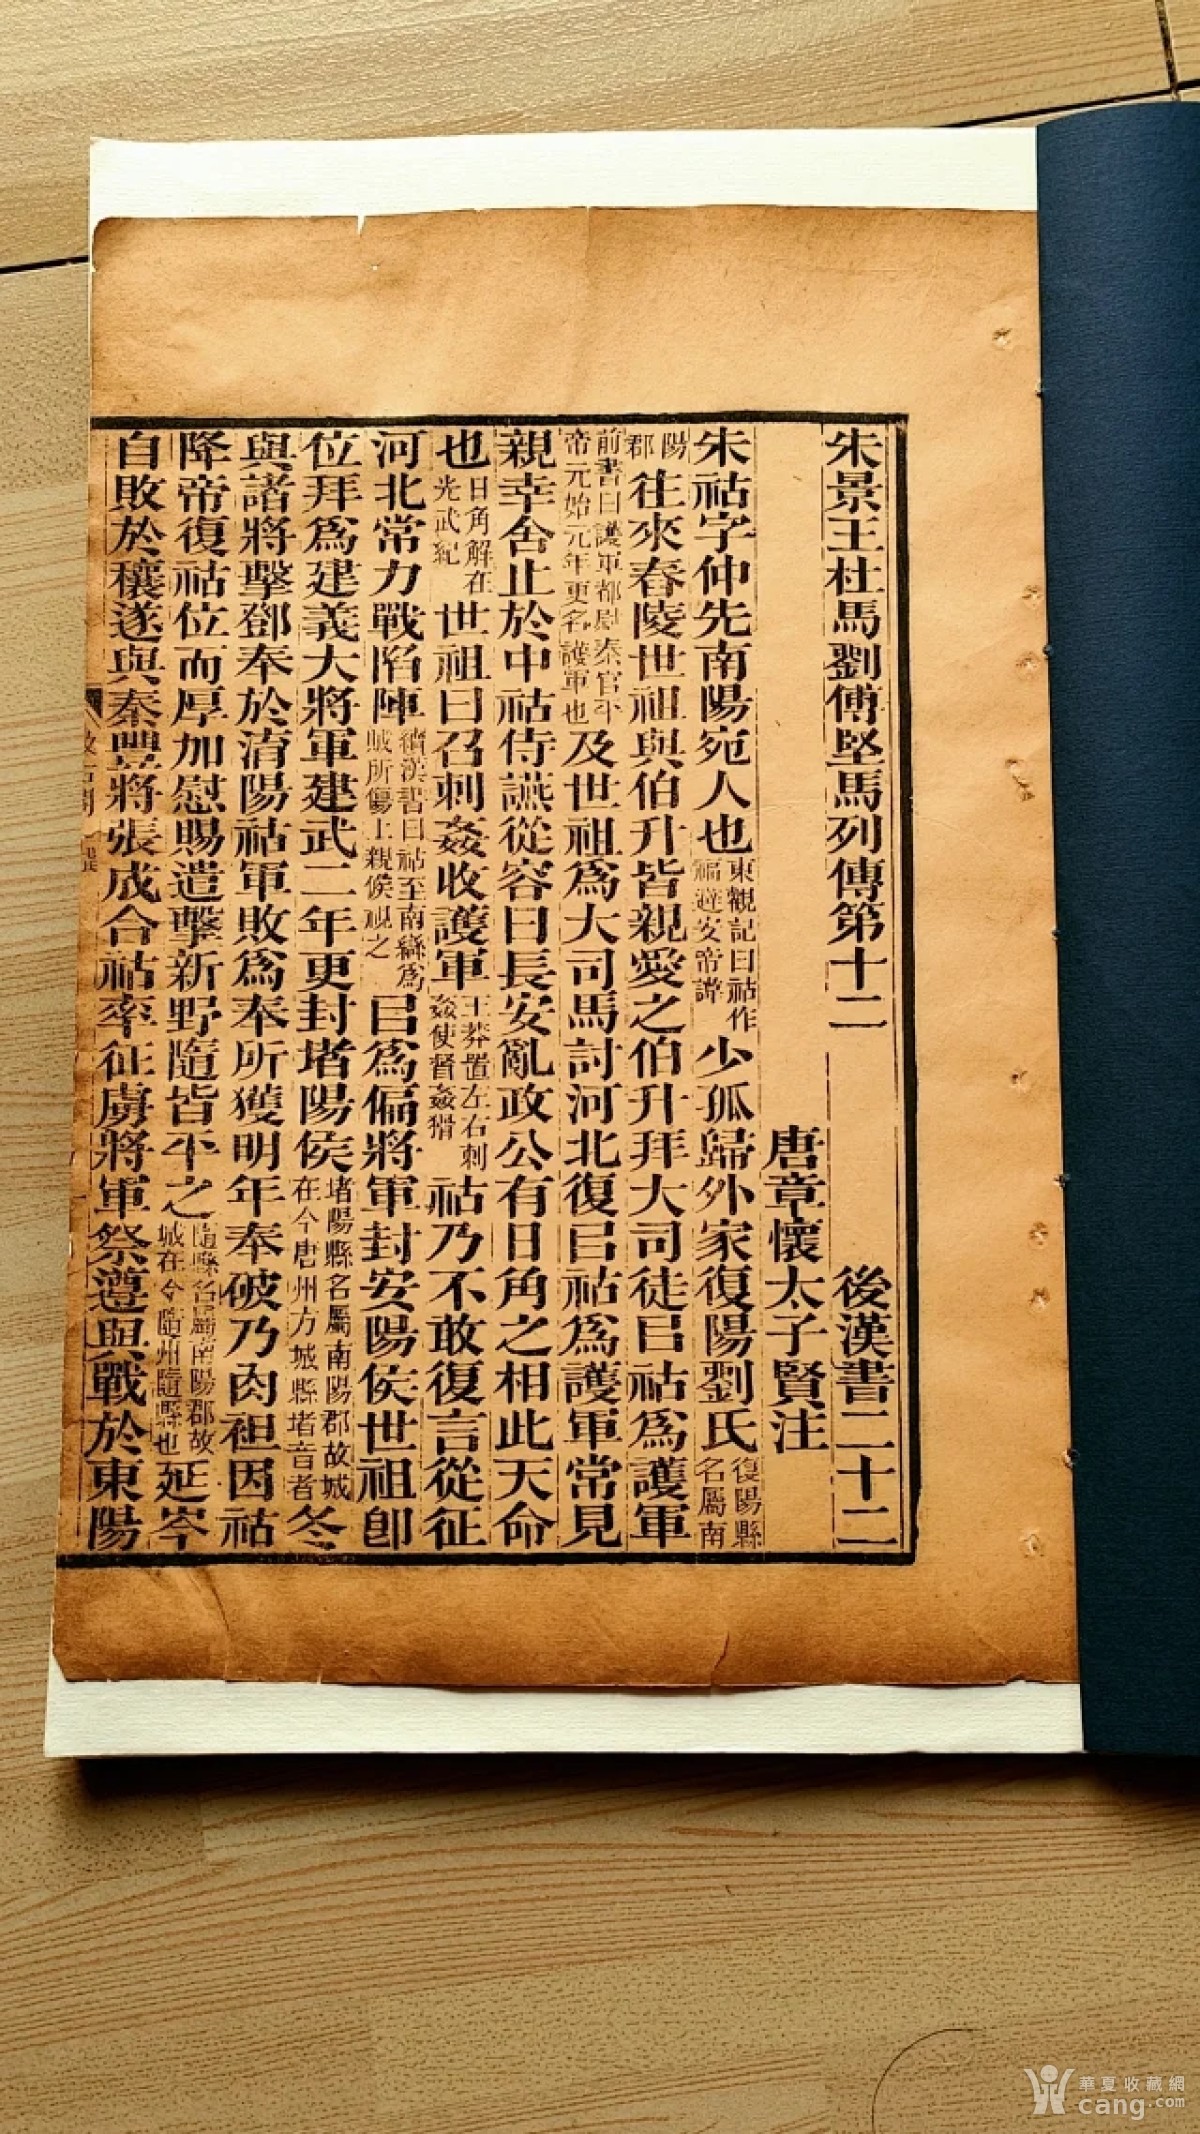 朱景王杜馬劉傅堅馬列傳第十二 後漢書二十二
唐章懷太子賢注
朱祜字仲先南陽宛人也東觀記曰祜作福避安帝諱少孤歸外家復陽劉氏復陽縣名屬南
陽郡往來舂陵世祖與伯升皆親愛之伯升拜大司徒㠯祜爲護軍
前書曰護軍都尉秦官平帝元始元年更名護軍也及世祖爲大司馬討河北復㠯祜爲護軍常見
親幸舍止於中祜侍讌從容曰長安亂政公有日角之相此天命
也日角解在光武紀世祖曰召刺姦收護軍王莽置左右刺姦使督姦猾祜乃不敢復言從征
河北常力戰陷陣續漢書曰祜至南䜌爲賊所傷上親候視之㠯爲偏將軍封安陽侯世祖卽
位拜爲建義大將軍建武二年更封堵陽侯堵陽縣名屬南陽郡故城在今唐州方城縣堵音者冬
與諸將擊鄧奉於淯陽祜軍敗爲奉所獲明年奉破乃肉袒因祜
降帝復祜位而厚加慰賜遣擊新野隨皆平之隨縣名屬南陽郡故城在今隨州隨縣也延岑
自敗於穰遂與秦豐將張成合祜率征虜將軍祭遵與戰於東陽
華夏收藏網
cang.com